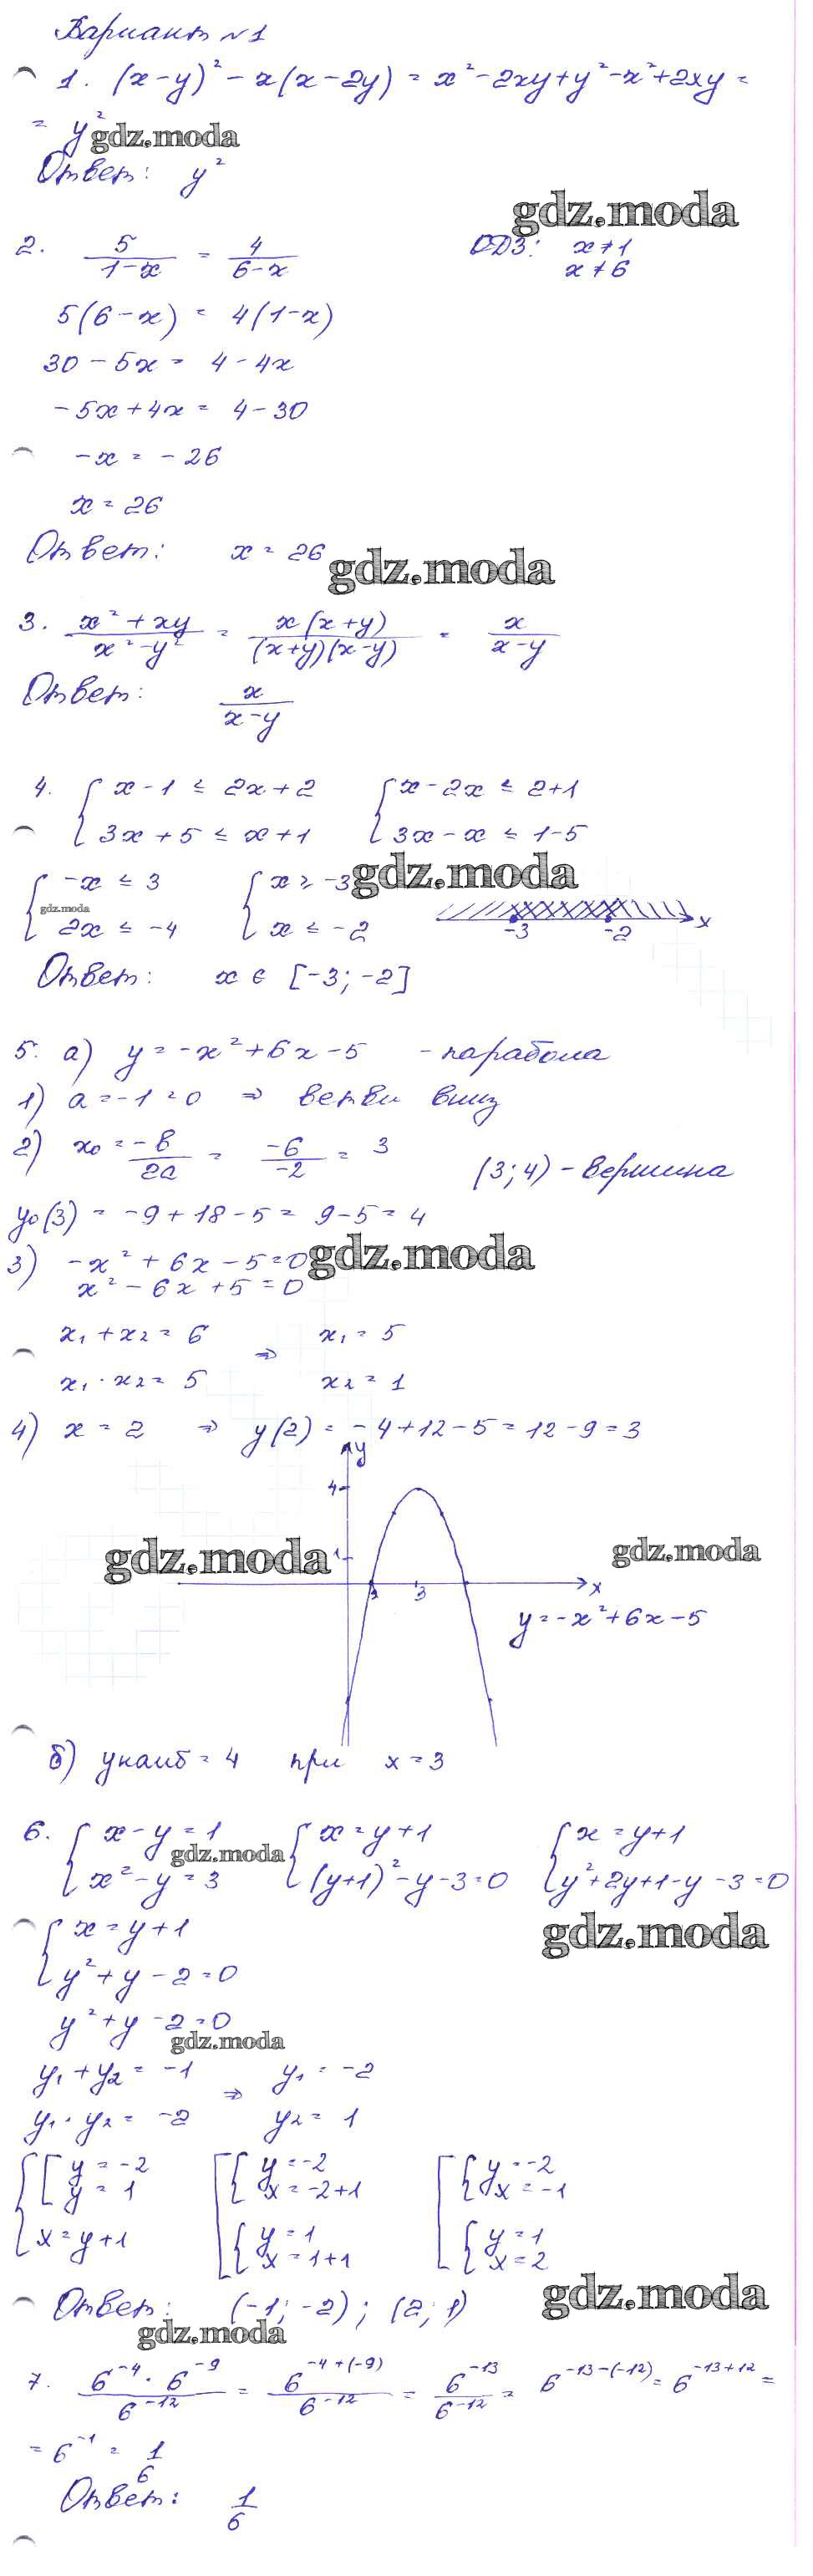 Вариант №1
1. (x-y)² - x(x-2y) = x² - 2xy + y² - x² + 2xy =
= y²
gdz.moda
Ответ: y²
gdz.moda
2. 5/(1-x) = 4/(6-x) ОДЗ: x≠1
x≠6
5(6-x) = 4(1-x)
30 - 5x = 4 - 4x
-5x + 4x = 4 - 30
-x = -26
x = 26
Ответ: x = 26
gdz.moda
3. (x² + xy)/(x² - y²) = x(x+y)/((x+y)(x-y)) = x/(x-y)
Ответ: x/(x-y)
4. { x - 1 ≤ 2x + 2 { x - 2x ≤ 2+1
{ 3x + 5 ≤ x + 1 { 3x - x ≤ 1-5
gdz.moda
{ -x ≤ 3 { x ≥ -3
gdz.moda
{ 2x ≤ -4 { x ≤ -2 -3 -2 x
Ответ: x ∈ [-3; -2]
5. а) y = -x² + 6x - 5 - парабола
1) a = -1 < 0 ⇒ ветви вниз
2) x₀ = -в/2a = -6/-2 = 3 (3; 4) - вершина
y₀(3) = -9 + 18 - 5 = 9 - 5 = 4
3) -x² + 6x - 5 = 0
gdz.moda
x² - 6x + 5 = 0
x₁ + x₂ = 6 ⇒ x₁ = 5
x₁ · x₂ = 5 x₂ = 1
4) x = 2 ⇒ y(2) = -4 + 12 - 5 = 12 - 9 = 3
y
4
1
gdz.moda
gdz.moda
3 x
y = -x² + 6x - 5
б) yнаиб = 4 при x = 3
6. { x - y = 1 { x = y + 1 { x = y + 1
gdz.moda
{ x² - y = 3 { (y+1)² - y - 3 = 0 { y² + 2y + 1 - y - 3 = 0
gdz.moda
{ x = y + 1
{ y² + y - 2 = 0
y² + y - 2 = 0
gdz.moda
y₁ + y₂ = -1 ⇒ y₁ = -2
y₁ · y₂ = -2 y₂ = 1
{ [ y = -2 [ { y = -2 [ { y = -2
y = 1 x = -2+1 x = -1
x = y + 1 { y = 1 { y = 1
x = 1+1 x = 2
gdz.moda
Ответ: (-1; -2); (2; 1)
gdz.moda
7. (6⁻⁴ · 6⁻⁹)/6⁻¹² = 6⁻⁴⁺⁽⁻⁹⁾/6⁻¹² = 6⁻¹³/6⁻¹² = 6⁻¹³⁻⁽⁻¹²⁾ = 6⁻¹³⁺¹² =
= 6⁻¹ = 1/6
Ответ: 1/6